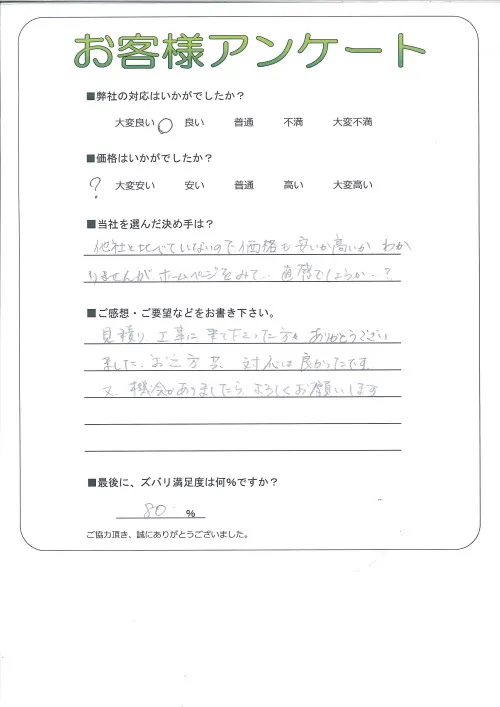 お客様アンケート
■弊社の対応はいかがでしたか?
大変良い ○ 良い 普通 不満 大変不満
■価格はいかがでしたか?
? 大変安い 安い 普通 高い 大変高い
■当社を選んだ決め手は?
他社と比べていないので価格も安いか高いか わか
りませんが ホームページをみて… 直感でしょうか..?
■ご感想・ご要望などをお書き下さい。
見積り 工事に来て下さった方々 ありがとうござい
ました。お二方共 対応は良かったです。
又 機会がありましたら よろしくお願いします
■最後に、ズバリ満足度は何%ですか?
80 %
ご協力頂き、誠にありがとうございました。